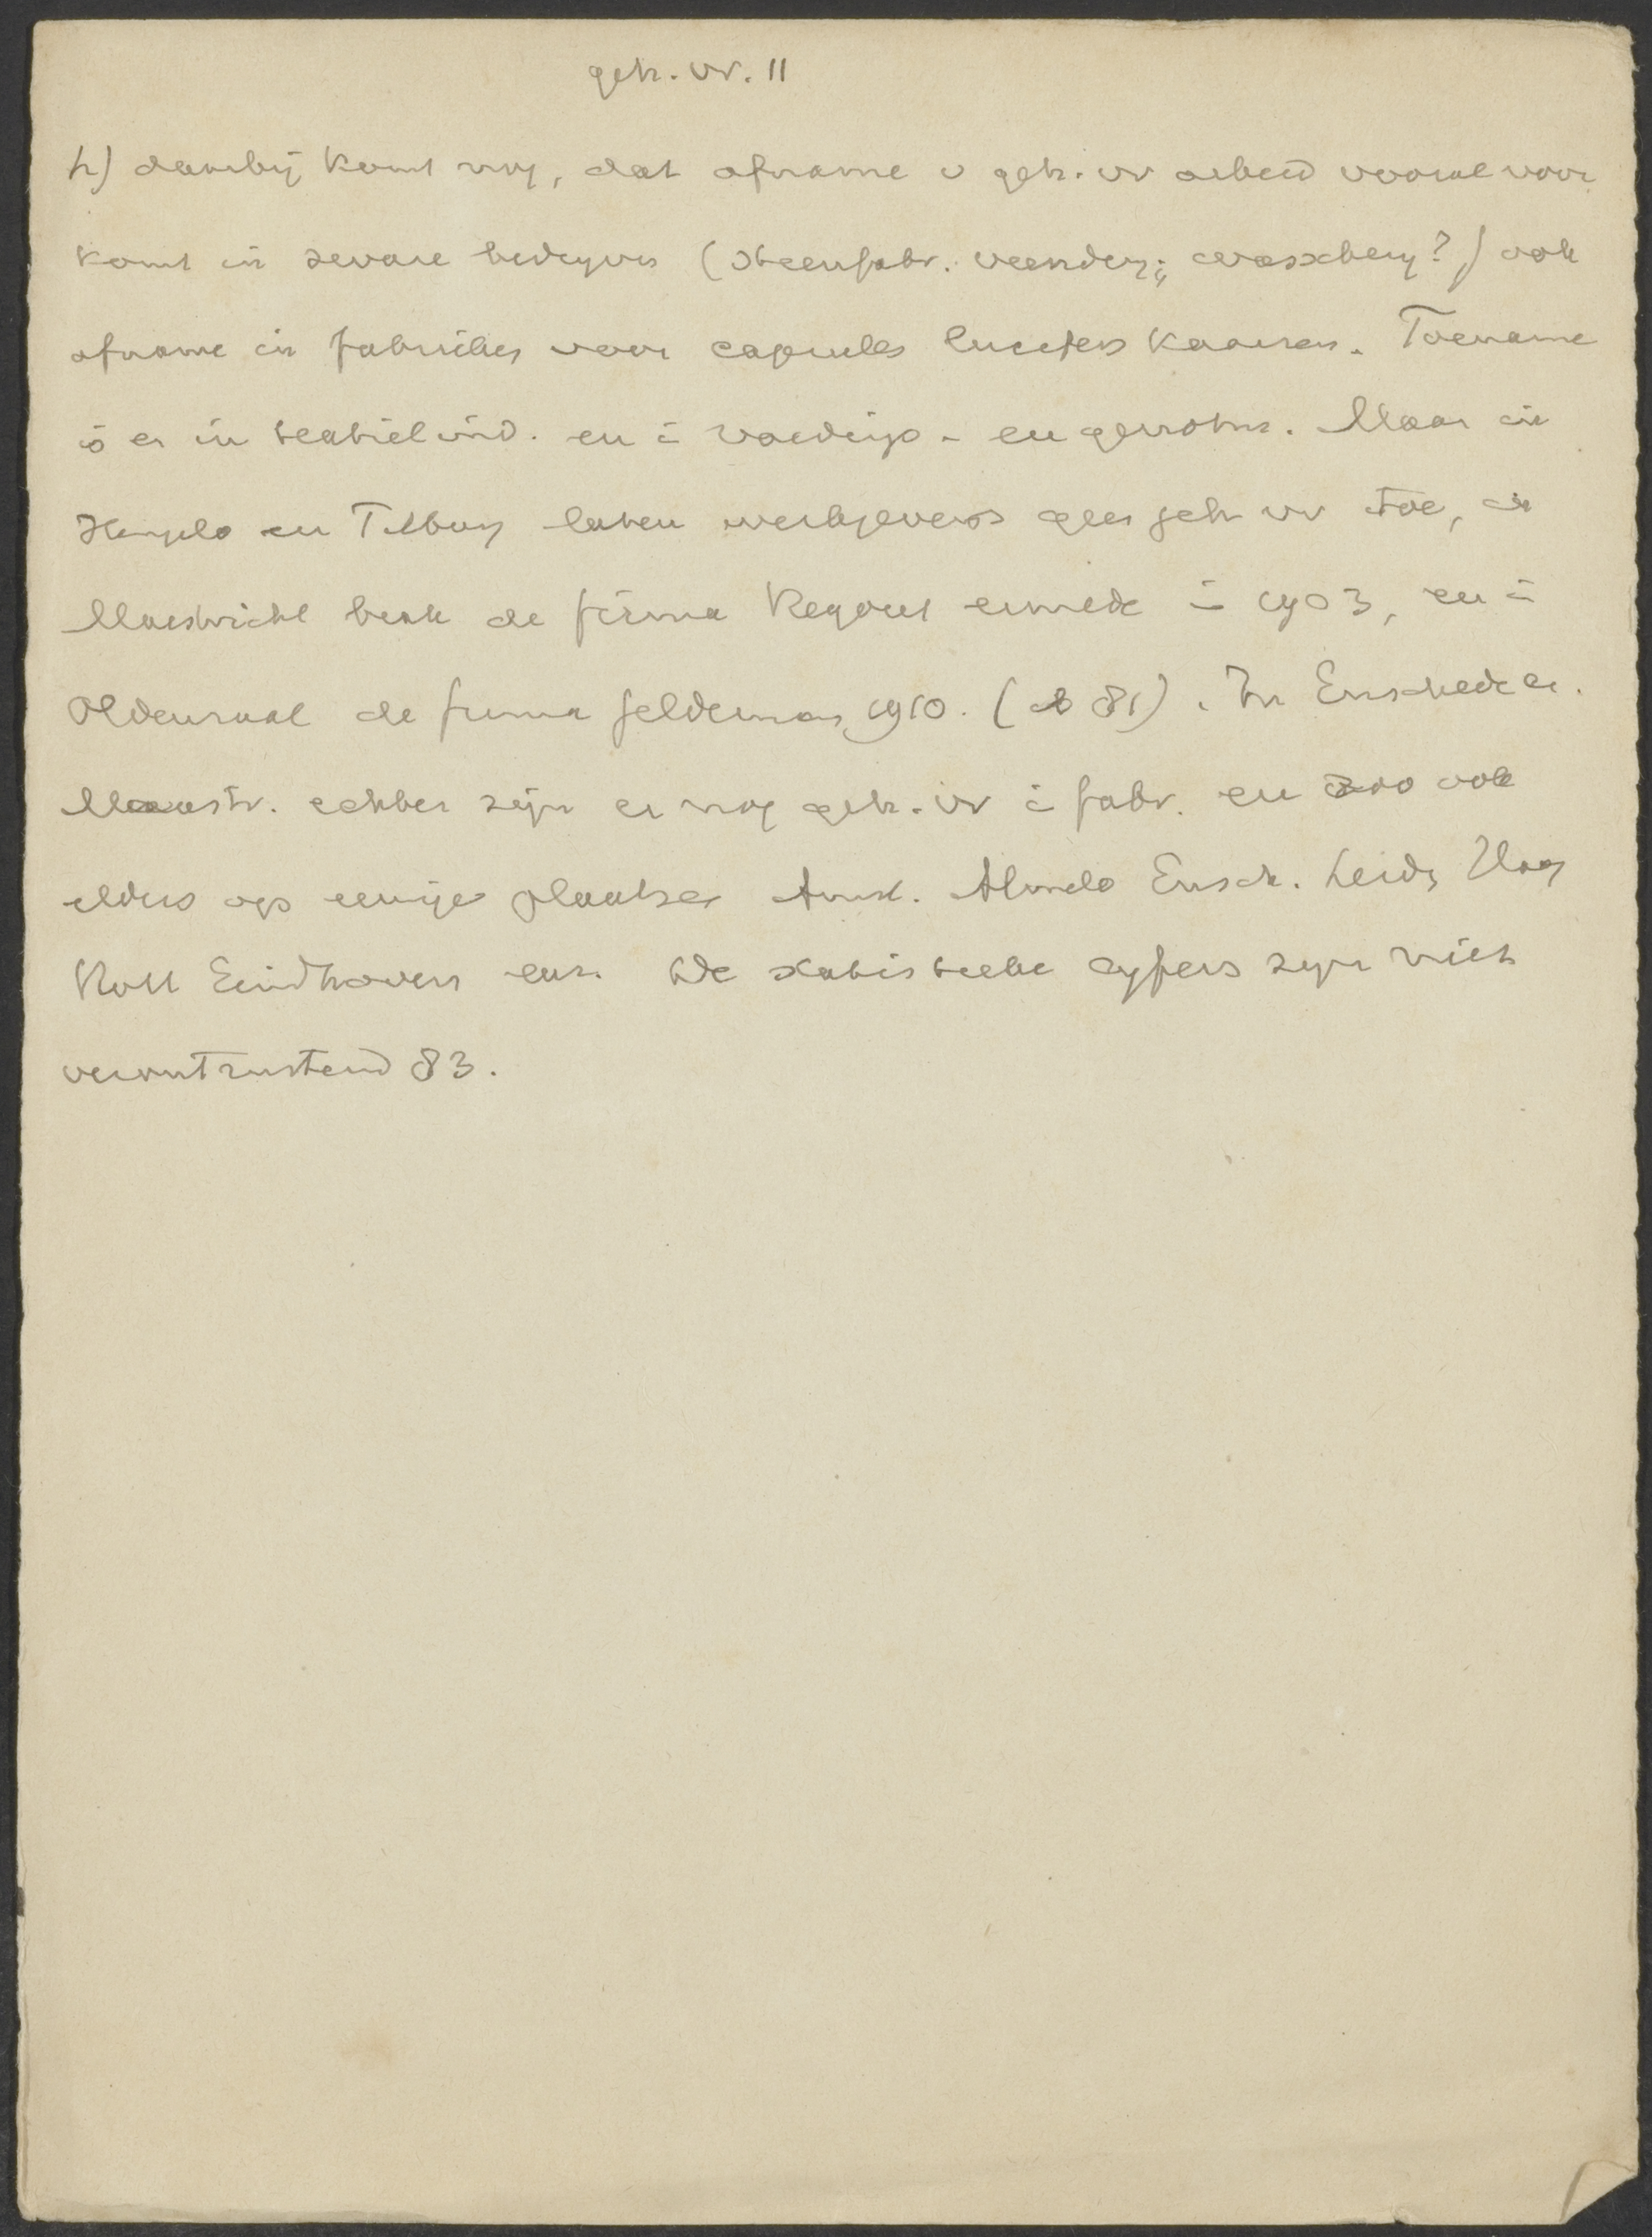 geh. vr. 11
h) daarbij komt nog, dat afname v geh. vr arbeid vooral voor
komt in zware bedrijven (steenfabr. veenderij; wasscherij?) ook
afname in fabrieken voor capsules lucifers kaarsen. Toename
is er in textiel ind. en i voedings- en genotm. Maar in
Hengelo en Tilburg laten werkgevers geen geh vr toe, in
Maastricht brak de firma Regout ermede i 1903, en i
Oldenzaal de firma Gelderman 1910. (81). In Enschede en
Maastr. echter zijn er nog geh. vr i fabr. en zoo ook
elders op eenige plaatsen Amst. Almelo Ensch. Leid, Haag
Rott Eindhoven enz. De statistieke cijfers zijn niet
verontrustend 83.